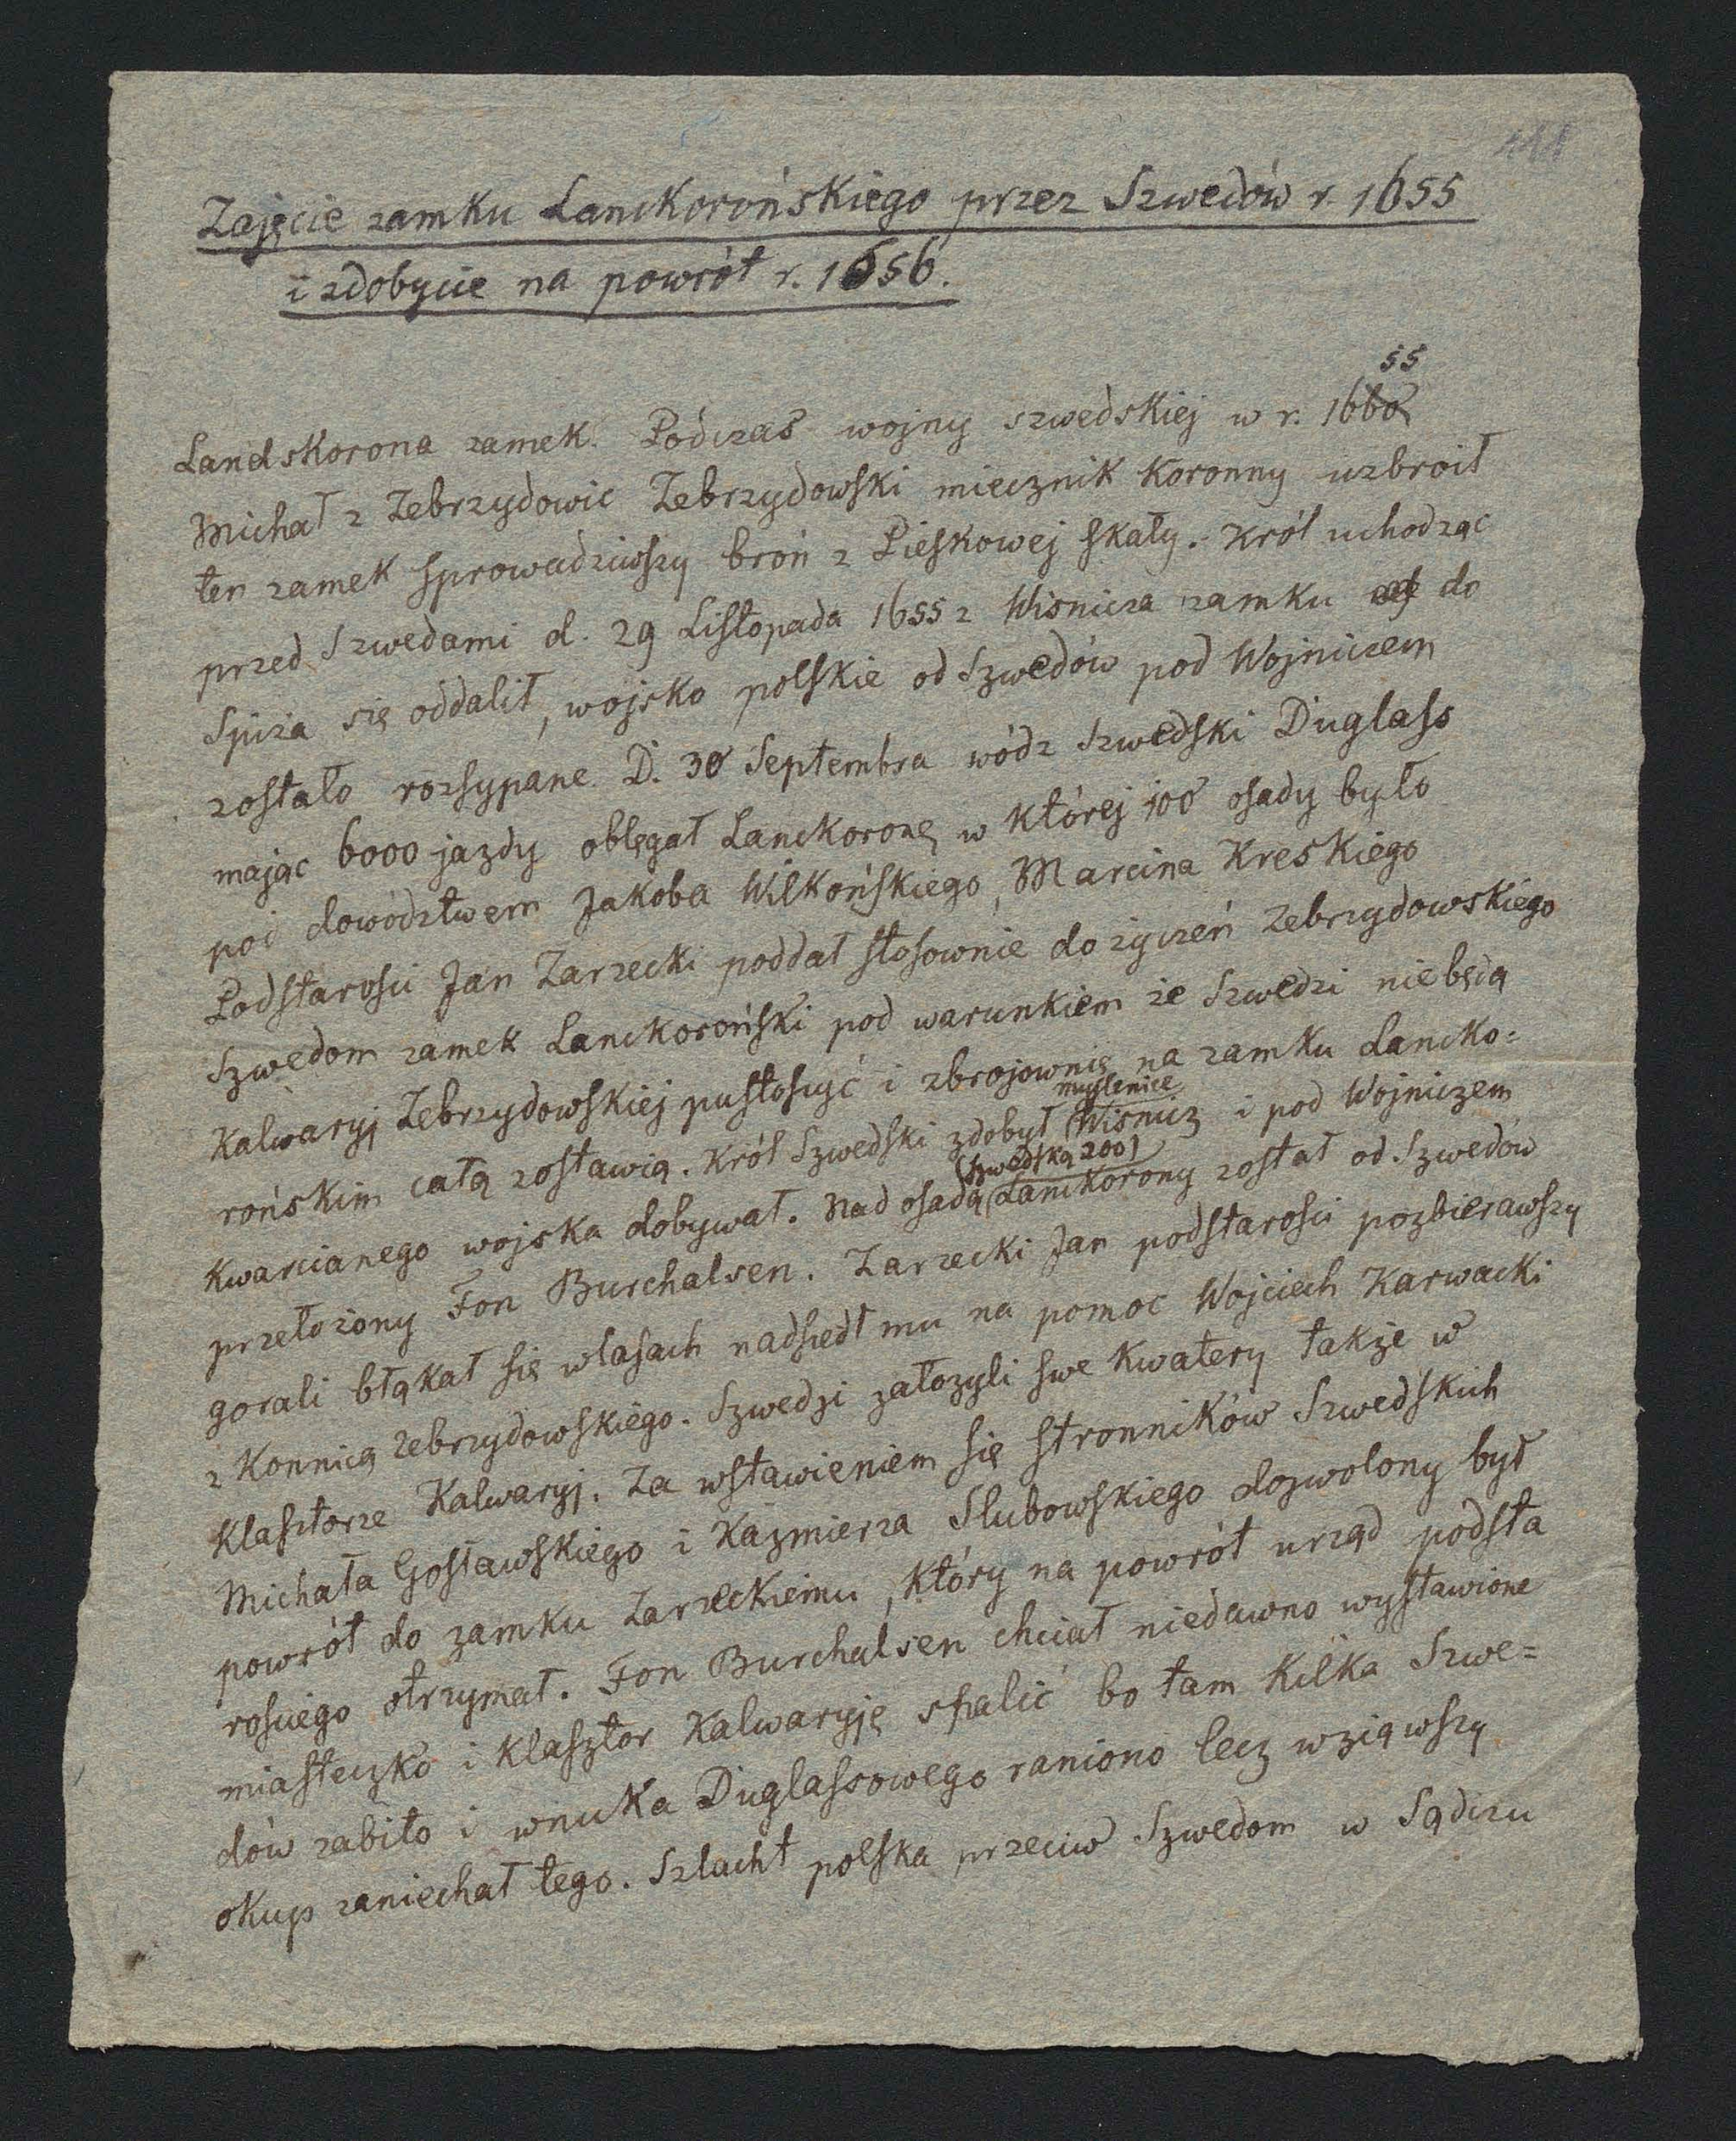 Zajęcie zamku Lanckorońskiego przez Szwedów r. 1655
i zdobycie na powrót r. 1656.
55
Landskorona zamek. Pódczas wojny szwedskiej w r. 1660
Michał z Zebrzydowic Zebrzydowski miecznik Koronny uzbroił
ten zamek sprowadziwszy broń z Pieskowej skały. Król uchodząc
przed Szwedami d. 29 Listopada 1655 z Wisnicza zamku do
Spiża się oddalił, wojsko polskie od Szwedów pod Wojniczem
zostało rozsypane. D. 30 Septembra wódz Szwedski Duglass
mając 6000 jazdy oblęgał Lanckoronę w której 100 osady było
pod dowództwem Jakoba Wilkońskiego, Marcina Kreskiego
Podstarości Jan Zarzecki poddał stosownie do życzeń Zebrzydowskiego
Szwedom zamek Lanckoroński pod warunkiem że Szwedzi niebędą
Kalwaryj Zebrzydowskiej pustoszyć i zbrojownię na zamku Lancko=
myslenice
rońskim całą zostawią. Król Szwedski zdobył Wisnicz i pod Wojniczem
(szwedską 200)
Kwarcianego wojska dobywał. Nad osadą Lanckorony został od Szwedów
przełożony Fon Burchalsen. Zarzecki Jan podstarości pozbierawszy
gorali błąkał się wlasach nadszedł mu na pomoc Wojciech Karwacki
z Konnicą Zebrzydowskiego. Szwedzi założyli swe Kwatery także w
Klasztorze Kalwaryj. Za wstawieniem się stronników Szwedskich
Michała Gosławskiego i Kaźmierza Slubowskiego dozwolony był
powrót do zamku Zarzeckiemu, który na powrót urząd podsta
rosciego otrzymał. Fon Burchalsen chciał niedawno wystawione
miasteczko i klasztor Kalwaryję spalić bo tam Kilka Szwe=
dów zabito i wnuka Duglassowego raniono lecz wziąwszy
okup zaniechał tego. Szlacht polska przeciw Szwedom w Sądczu